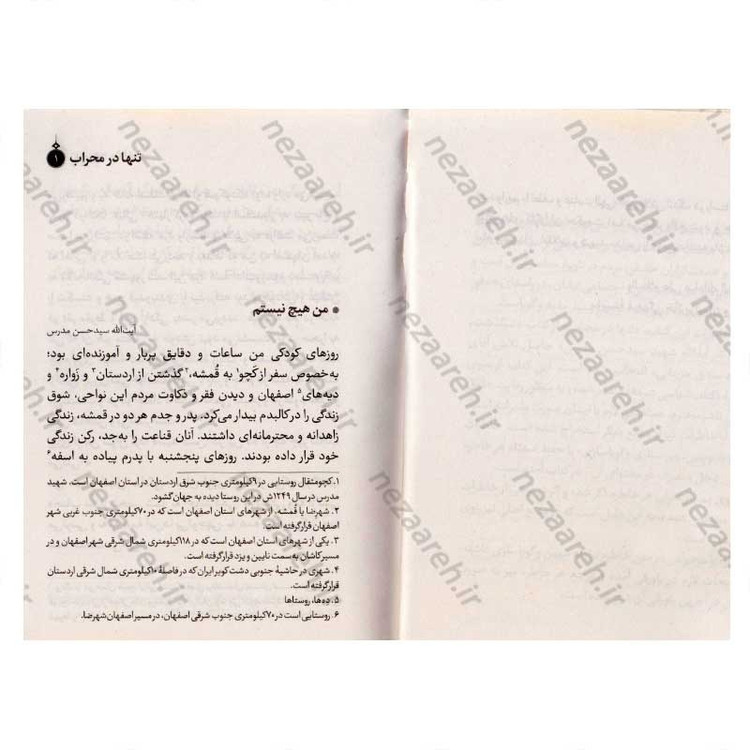 تنها در محراب ۱
من هیچ نیستم
آیت‌الله سیدحسن مدرس
روزهای کودکی من ساعات و دقایق پربار و آموزنده‌ای بود؛
به‌خصوص سفر از کَچو۱ به قُمشه،۲ گذشتن از اردستان۳ و زَواره۴ و
دیه‌های۵ اصفهان و دیدن فقر و ذکاوت مردم این نواحی، شوق
زندگی را در کالبدم بیدار می‌کرد. پدر و جدم هر دو در قمشه، زندگی
زاهدانه و محترمانه‌ای داشتند. آنان قناعت را به‌جد، رکن زندگی
خود قرار داده بودند. روزهای پنجشنبه با پدرم پیاده به اسفه۶
۱. کچومثقال روستایی در ۹کیلومتری جنوب شرق اردستان در استان اصفهان است، شهید
مدرس در سال ۱۲۴۹ش در این روستا دیده به جهان گشود.
۲. شهرضا یا قُمشه، از شهرهای استان اصفهان است که در ۷۰کیلومتری جنوب غربی شهر
اصفهان قرار گرفته است.
۳. یکی از شهرهای استان اصفهان است که در ۱۱۸کیلومتری شمال شرقی شهر اصفهان و در
مسیر کاشان به سمت نایین و یزد قرار گرفته است.
۴. شهری در حاشیهٔ جنوبی دشت کویر ایران که در فاصلهٔ ۱۰کیلومتری شمال شرقی اردستان
قرار گرفته است.
۵. ده‌ها، روستاها
۶. روستایی است در ۷۰کیلومتری جنوب شرقی اصفهان، در مسیر اصفهان شهرضا.
nezaareh.ir
nezaareh.ir
nezaareh.ir
nezaareh.ir
nezaareh.ir
nezaareh.ir
nezaareh.ir
nezaareh.ir
nezaareh.ir